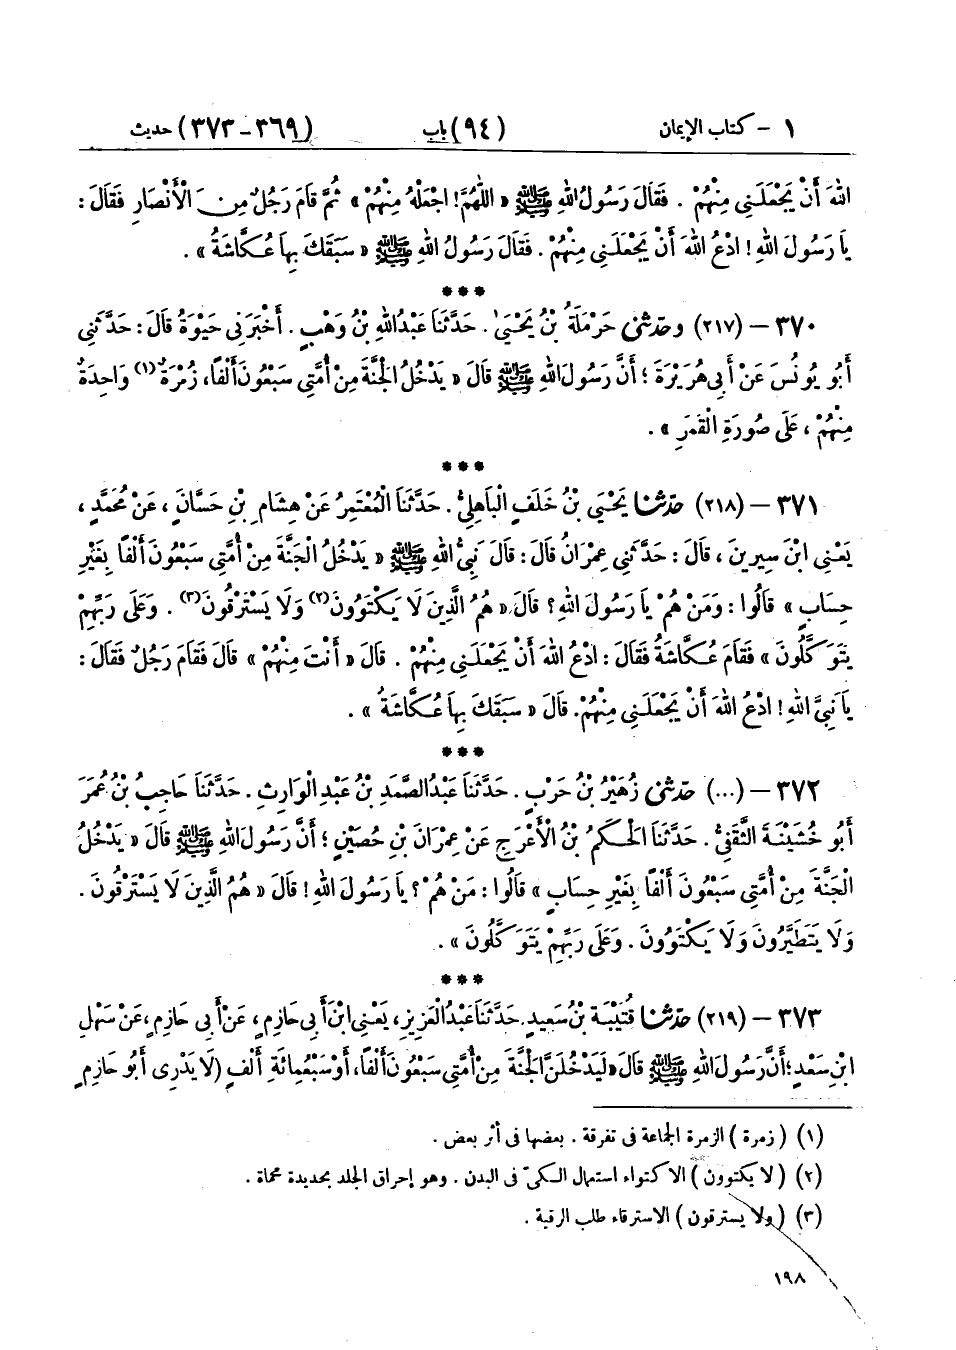 ١ - كتاب الإيمان (٩٤) باب (٣٦٩ - ٣٧٣) حديث
اللهَ أَنْ يَجْعَلَنِي مِنْهُمْ . فَقَالَ رَسُولُ اللهِ ﷺ « اللّٰهُمَّ ! اجْعَلْهُ مِنْهُمْ » ثُمَّ قَامَ رَجُلٌ مِنَ الْأَنْصَارِ فَقَالَ :
يَا رَسُولَ اللهِ ! ادْعُ اللهَ أَنْ يَجْعَلَنِي مِنْهُمْ . فَقَالَ رَسُولُ اللهِ ﷺ « سَبَقَكَ بِهَا عُكَّاشَةُ » .
***
٣٧٠ – (٢١٧) وحدثني حَرْمَلَةُ بْنُ يَحْيَىٰ . حَدَّثَنَا عَبْدُ اللهِ بْنُ وَهْبٍ . أَخْبَرَنِي حَيْوَةُ قَالَ : حَدَّثَنِي
أَبُو يُونُسَ عَنْ أَبِي هُرَيْرَةَ ؛ أَنَّ رَسُولَ اللهِ ﷺ قَالَ « يَدْخُلُ الْجَنَّةَ مِنْ أُمَّتِي سَبْعُونَ أَلْفًا ، زُمْرَةٌ (١) وَاحِدَةٌ
مِنْهُمْ ، عَلَى صُورَةِ الْقَمَرِ » .
***
٣٧١ – (٢١٨) حدثنا يَحْيَى بْنُ خَلَفٍ الْبَاهِلِيُّ . حَدَّثَنَا الْمُعْتَمِرُ عَنْ هِشَامِ بْنِ حَسَّانَ ، عَنْ مُحَمَّدٍ ،
يَعْنِي ابْنَ سِيرِينَ ، قَالَ : حَدَّثَنِي عِمْرَانُ قَالَ : قَالَ نَبِيُّ اللهِ ﷺ « يَدْخُلُ الْجَنَّةَ مِنْ أُمَّتِي سَبْعُونَ أَلْفًا بِغَيْرِ
حِسَابٍ » قَالُوا : وَمَنْ هُمْ يَا رَسُولَ اللهِ ؟ قَالَ « هُمُ الَّذِينَ لَا يَكْتَوُونَ (٢) وَلَا يَسْتَرْقُونَ (٣) . وَعَلَى رَبِّهِمْ
يَتَوَكَّلُونَ » فَقَامَ عُكَّاشَةُ فَقَالَ : ادْعُ اللهَ أَنْ يَجْعَلَنِي مِنْهُمْ . قَالَ « أَنْتَ مِنْهُمْ » قَالَ فَقَامَ رَجُلٌ فَقَالَ :
يَا نَبِيَّ اللهِ ! ادْعُ اللهَ أَنْ يَجْعَلَنِي مِنْهُمْ . قَالَ « سَبَقَكَ بِهَا عُكَّاشَةُ » .
***
٣٧٢ – (...) حدثني زُهَيْرُ بْنُ حَرْبٍ . حَدَّثَنَا عَبْدُ الصَّمَدِ بْنُ عَبْدِ الْوَارِثِ . حَدَّثَنَا حَاجِبُ بْنُ عُمَرَ
أَبُو خُشَيْنَةَ الثَّقَفِيُّ . حَدَّثَنَا الْحَكَمُ بْنُ الْأَعْرَجِ عَنْ عِمْرَانَ بْنِ حُصَيْنٍ ؛ أَنَّ رَسُولَ اللهِ ﷺ قَالَ « يَدْخُلُ
الْجَنَّةَ مِنْ أُمَّتِي سَبْعُونَ أَلْفًا بِغَيْرِ حِسَابٍ » قَالُوا : مَنْ هُمْ ؟ يَا رَسُولَ اللهِ ! قَالَ « هُمُ الَّذِينَ لَا يَسْتَرْقُونَ .
وَلَا يَتَطَيَّرُونَ وَلَا يَكْتَوُونَ . وَعَلَى رَبِّهِمْ يَتَوَكَّلُونَ » .
***
٣٧٣ – (٢١٩) حدثنا قُتَيْبَةُ بْنُ سَعِيدٍ . حَدَّثَنَا عَبْدُ الْعَزِيزِ ، يَعْنِي ابْنَ أَبِي حَازِمٍ ، عَنْ أَبِي حَازِمٍ ، عَنْ سَهْلِ
ابْنِ سَعْدٍ ؛ أَنَّ رَسُولَ اللهِ ﷺ قَالَ « لَيَدْخُلَنَّ الْجَنَّةَ مِنْ أُمَّتِي سَبْعُونَ أَلْفًا ، أَوْ سَبْعُمِائَةِ أَلْفٍ (لَا يَدْرِي أَبُو حَازِمٍ
(١) ( زمرة ) الزمرة الجماعة في تفرقة . بعضها في أثر بعض .
(٢) ( لا يكتوون ) الاكتواء استعمال الكيّ في البدن . وهو إحراق الجلد بحديدة محماة .
(٣) ( ولا يسترقون ) الاسترقاء طلب الرقية .
١٩٨